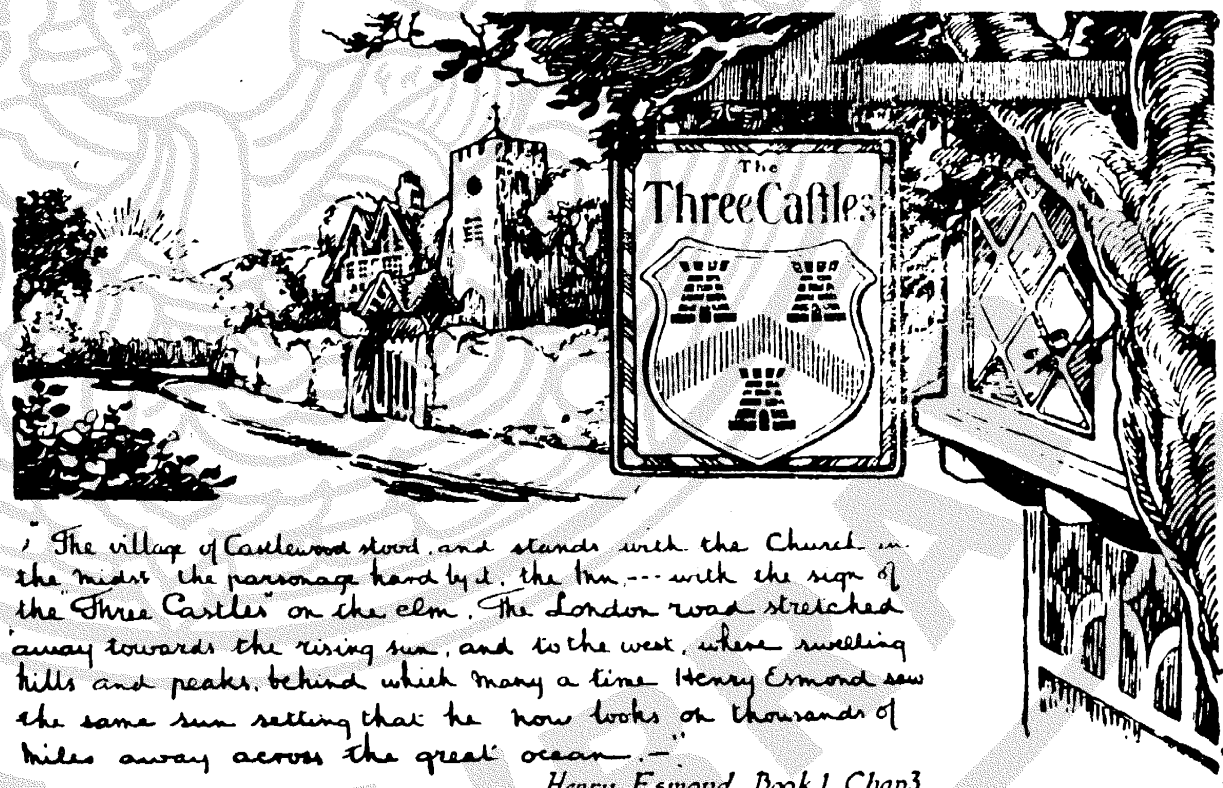 The
Three Caſtles
" The village of Castlewood stood, and stands with the Church in
the midst the parsonage hard by it, the Inn, --- with the sign of
the "Three Castles" on the elm. The London road stretched
away towards the rising sun, and to the west, where swelling
hills and peaks, behind which many a time Henry Esmond saw
the same sun setting that he now looks on thousands of
miles away across the great ocean. —"
Henry Esmond Book 1 Chap 3